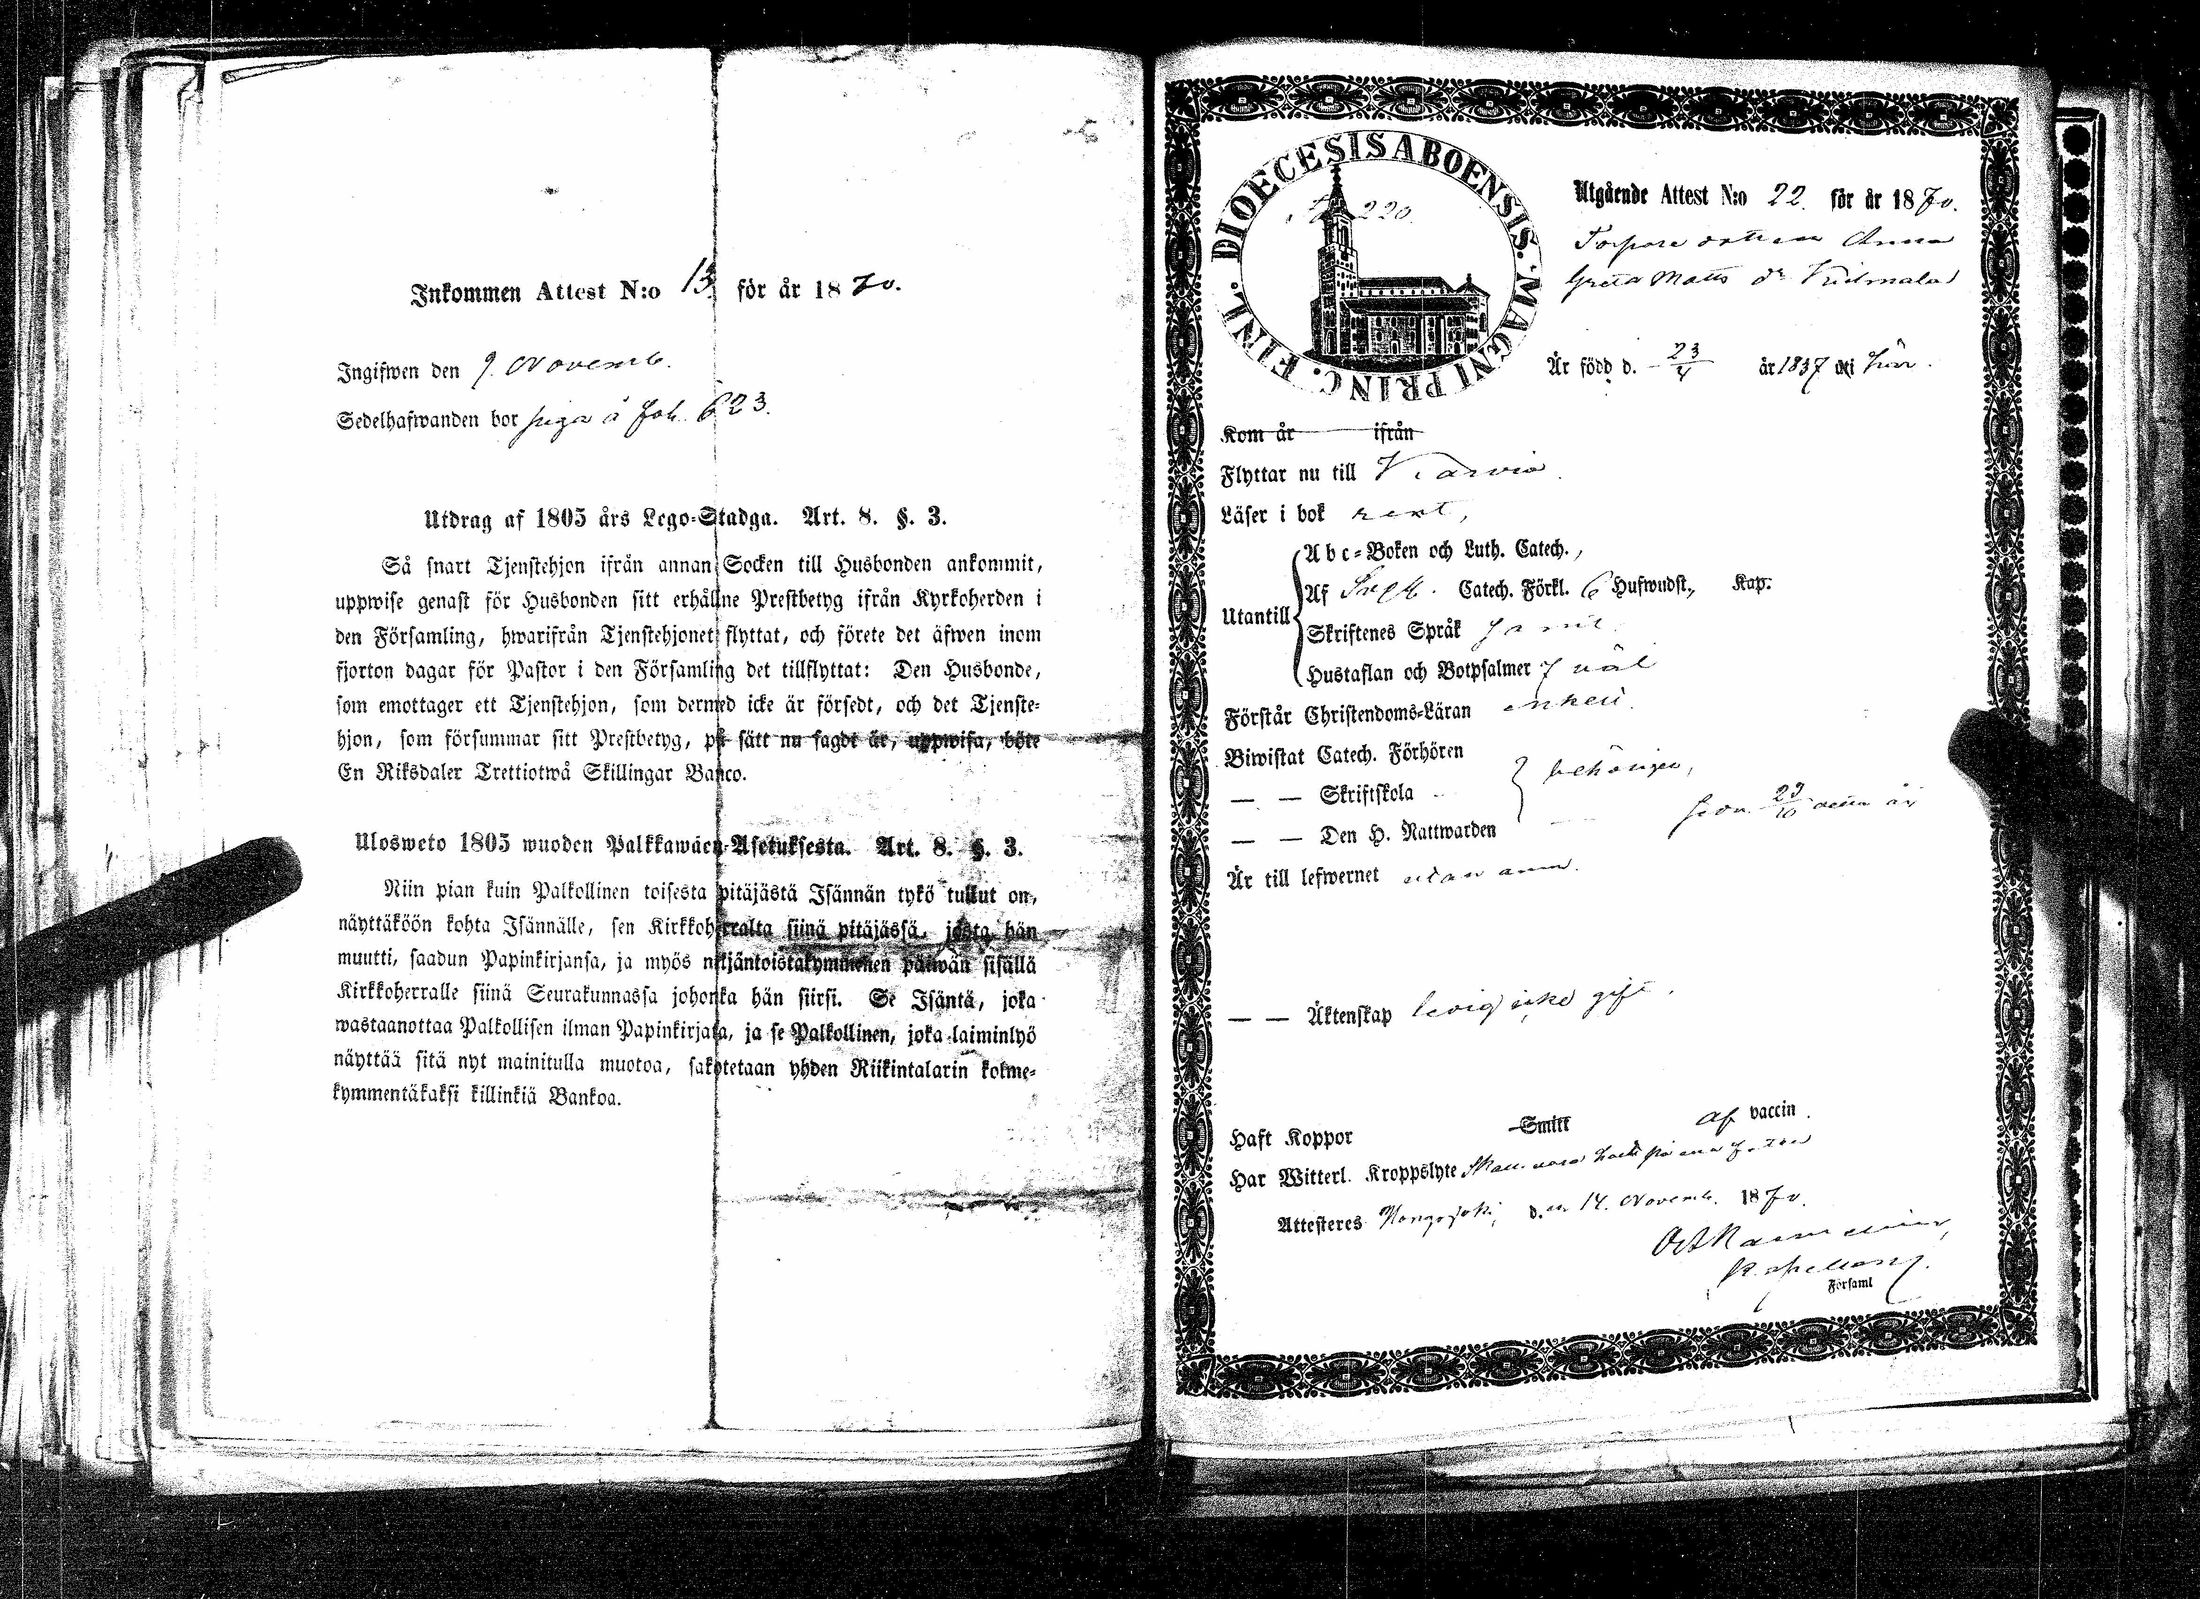 Inkommen Attest N:o 13. för år 1870.
Ingifwen den 9. Novemb.
Sedelhafwanden bor piga å fol. 623.
Utdrag af 1805 års Lego-Stadga. Art. 8. §. 3.
Så snart Tjenstehjon ifrån annan Socken till Husbonden ankommit,
uppwise genast för Husbonden sitt erhållne Prestbetyg ifrån Kyrkoherden i
den Församling, hwarifrån Tjenstehjonet flyttat, och förete det äfwen inom
fjorton dagar för Pastor i den Församling det tillflyttat: Den Husbonde,
som emottager ett Tjenstehjon, som dermed icke är försedt, och det Tjenste-
hjon, som försummar sitt Prestbetyg, på sätt nu sagdt är, uppwisa, böte
En Riksdaler Trettiotwå Skillingar Banco.
Ulosweto 1805 wuoden Palkkawäen-Asetuksesta. Art. 8. §. 3.
Niin pian kuin Palkollinen toisesta pitäjästä Isännän tykö tullut on,
näyttäköön kohta Isännälle, sen Kirkkoherralta siinä pitäjässä, josta hän
muutti, saadun Papinkirjansa, ja myös neljäntoistakymmenen päiwän sisällä
Kirkkoherralle siinä Seurakunnassa johonka hän siirsi. Se Isäntä, joka
wastaanottaa Palkollisen ilman Papinkirjata, ja se Palkollinen, joka laiminlyö
näyttää sitä nyt mainitulla muotoa, sakotetaan yhden Riikintalarin kolme-
kymmentäkaksi killinkiä Bankoa.
DIOECESIS ABOENSIS. MAGNI PRINC. FINL.
220.
Utgående Attest N:o 22. för år 1870.
Torpare dottren Anna
Greta Matts dr
Är född d. 23/4 år 1837 i här.
Kom år ifrån
Flyttar nu till Karvia.
Läser i bok rent,
Abc-Boken och Luth. Catech.,
Af Catech. Förkl. 6 Hufwudst., Kap.
Utantill
Skriftenes Språk
Hustaflan och Botpsalmer 7 väl
Förstår Christendoms-Läran enkelt.
Biwistat Catech. Förhören
— — Skriftskola behörigen,
— — Den H. Nattwarden sedn. 23/10 detta år
Är till lefwernet utan anm.
— — Äktenskap ledig icke gift.
Haft Koppor Smitt af vaccin.
Har Witterl. Kroppslyte
Attesteres Hongojoki, d. 14. Novemb. 1870.
Kapellans
Församl